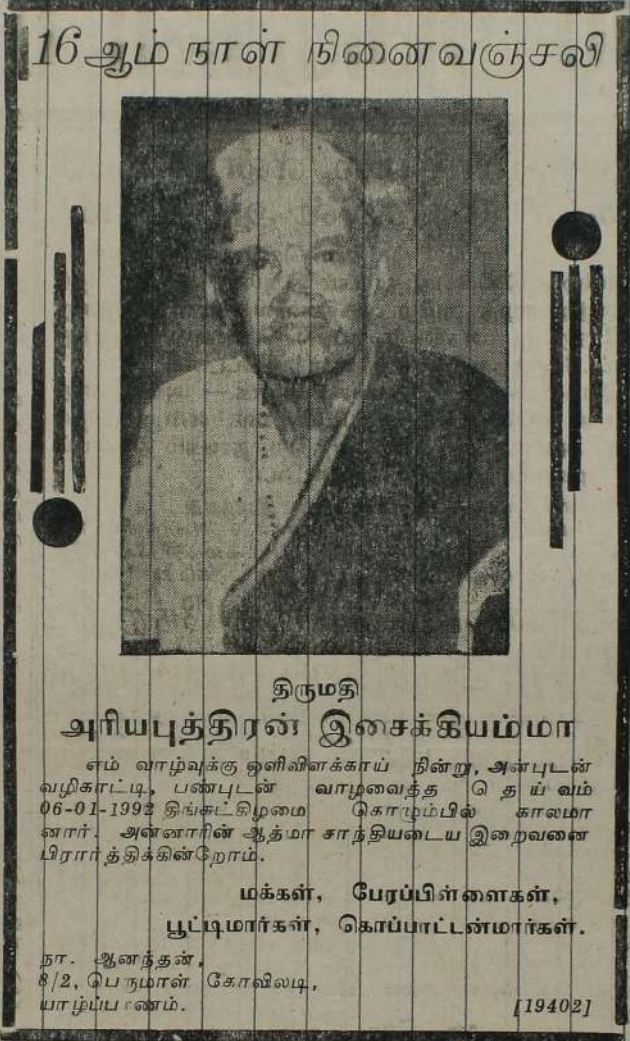 16 ஆம் நாள் நினைவஞ்சலி
திருமதி
அரியபுத்திரன் இசைக்கியம்மா
எம் வாழ்வுக்கு ஒளிவிளக்காய் நின்று, அன்புடன்
வழிகாட்டி, பண்புடன் வாழவைத்த தெய்வம்
06-01-1992 திங்கட்கிழமை கொழும்பில் காலமா
னார். அன்னாரின் ஆத்மா சாந்தியடைய இறைவனை
பிரார்த்திக்கின்றோம்.
மக்கள், பேரப்பிள்ளைகள்,
பூட்டிமார்கள், கொப்பாட்டன்மார்கள்.
நா. ஆனந்தன்,
8/2, பெருமாள் கோவிலடி,
யாழ்ப்பாணம்.
[19402]